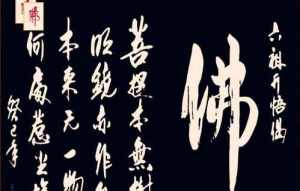 六祖开悟偈
佛
菩提本無樹
明鏡亦作
本来无一物
何處惹尘
癸巳年
佛